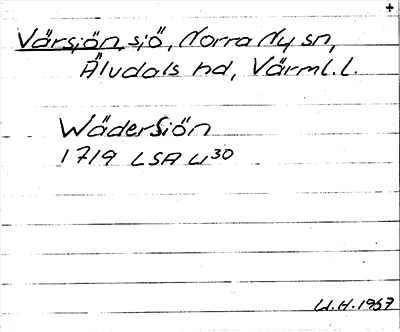 +
Värsjön, sjö, Norra Ny sn,
Älvdals hd, Värml.l.
Wädersiön
1719 LSA U30
U.H. 1967